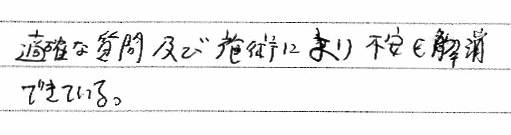 適確な質問及び施術により不安を解消
できている。